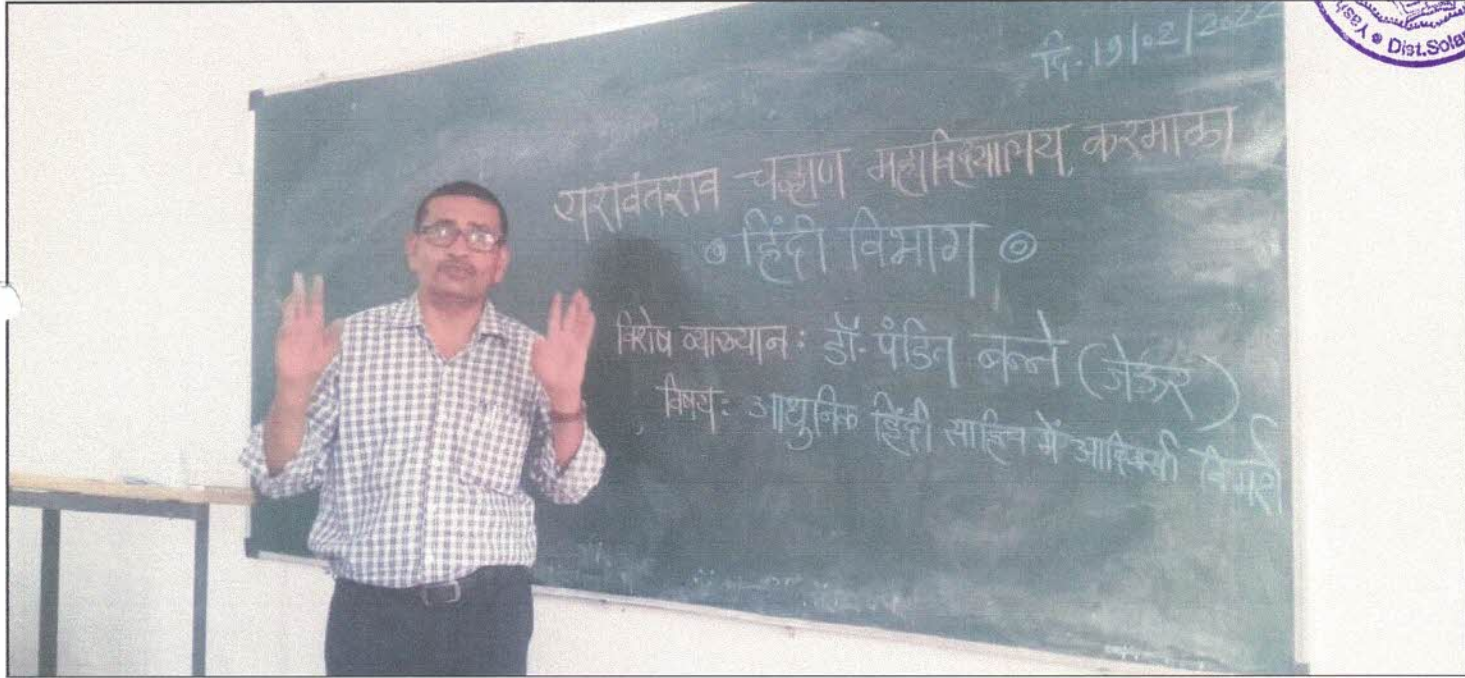 Dist.Solap
दि. 19/02/2022
यशवंतराव चव्हाण महाविद्यालय, करमाळा
हिंदी विभाग
विशेष व्याख्यान: डॉ. पंडित बन्ने (जेऊर)
विषय: आधुनिक हिंदी साहित्य में आदिवासी विमर्श